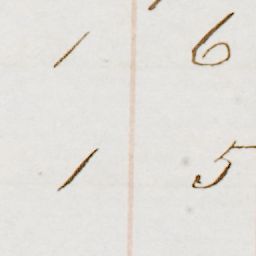 1 6
1 5